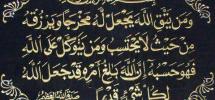 ومن يتق الله يجعل له مخرجا ويرزقه
من حيث لا يحتسب ومن يتوكل على الله
فهو حسبه إن الله بالغ أمره قد جعل الله
لكل شيء قدرا